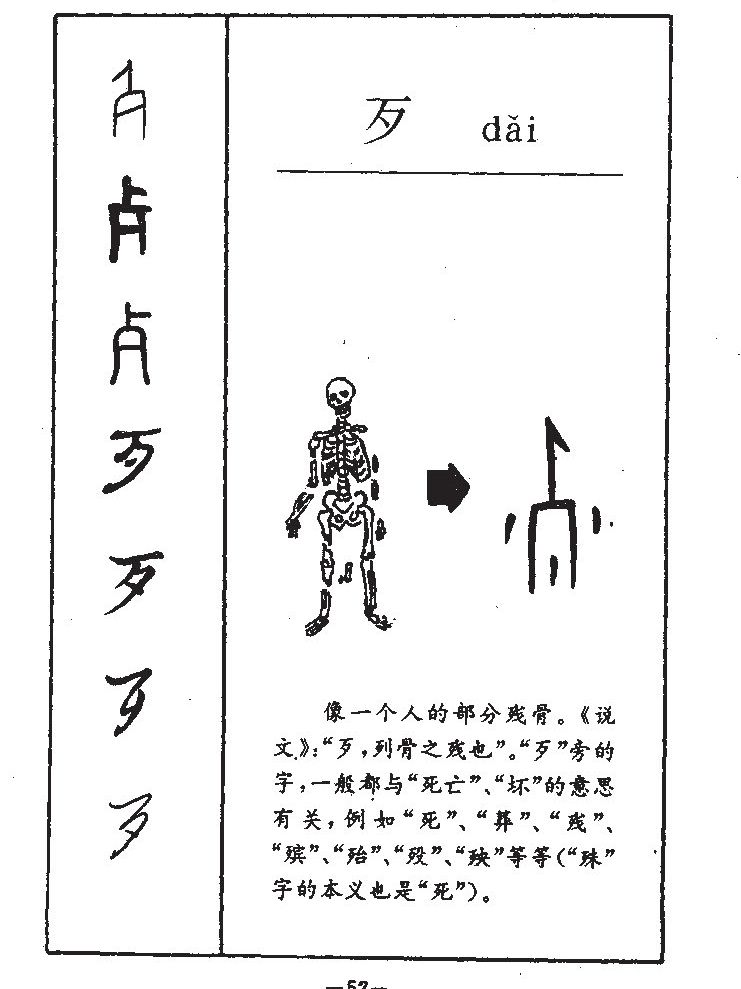 歹 dǎi
像一个人的部分残骨。《说
文》：“歹，列骨之残也”。“歹”旁的
字，一般都与“死亡”、“坏”的意思
有关，例如“死”、“葬”、“残”、
“殡”、“殆”、“殁”、“殃”等等（“殊”
字的本义也是“死”）。